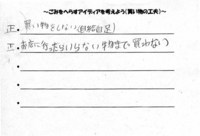 ～ごみをへらすアイディアを考えよう(買い物の工夫)～
正・買い物をしない(自給自足)
正・お店に行ったらいらない物まで買わない)